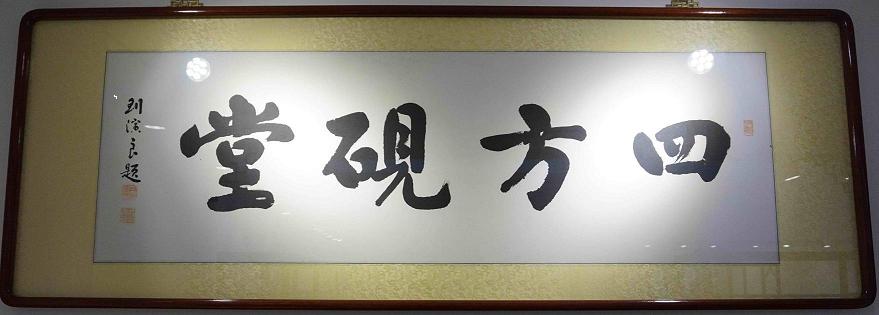 四方砚堂
刘演良题